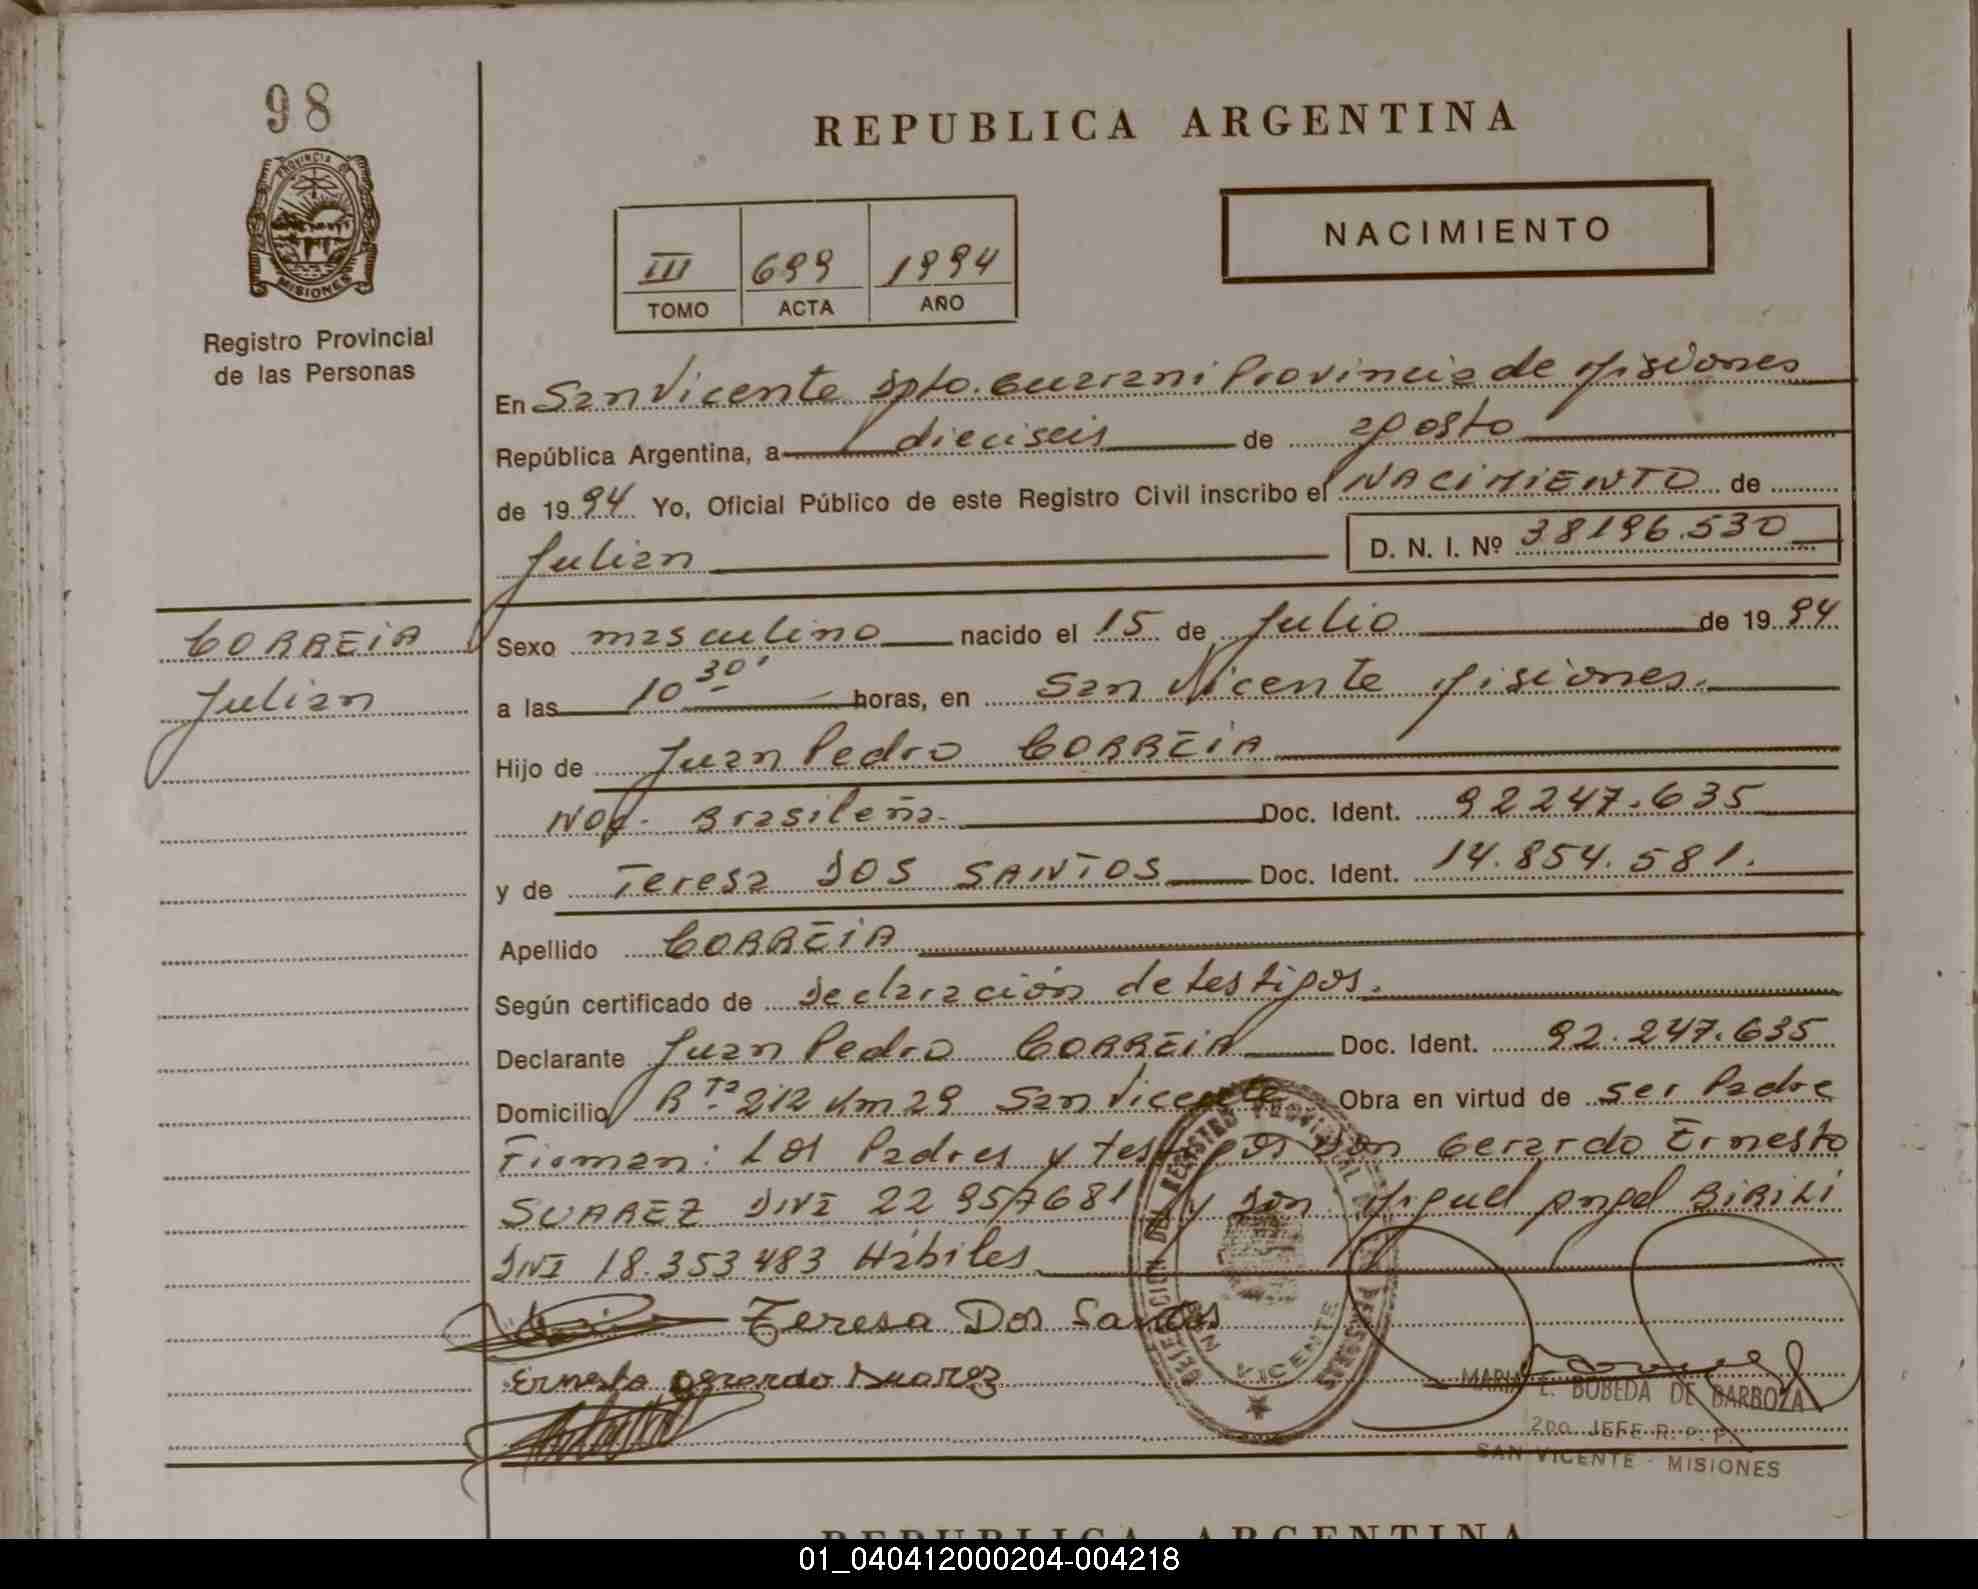 98
REPUBLICA ARGENTINA
PROVINCIA DE
MISIONES
NACIMIENTO
III 699 1994
TOMO ACTA AÑO
Registro Provincial
de las Personas
En San Vicente Dpto. Guarani Provincia de Misiones
República Argentina, a dieciseis de agosto
de 1994 Yo, Oficial Público de este Registro Civil inscribo el NACIMIENTO de
Julian D. N. I. Nº 38196.530
CORREIA
Julian
Sexo masculino nacido el 15 de Julio de 1994
a las 10 30' horas, en San Vicente Misiones.
Hijo de Juan Pedro CORREIA
Nac. Brasileña. Doc. Ident. 92247.635
y de Teresa DOS SANTOS Doc. Ident. 14.854.581.
Apellido CORREIA
Según certificado de declaración de testigos.
Declarante Juan Pedro CORREIA Doc. Ident. 92.247.635
Domicilio Rta 212 Km 29 San Vicente Obra en virtud de ser Padre
Firman: Los Padres y testigos Don Gerardo Ernesto
SUAREZ DNI 22 957681 y Don Miguel Angel BIRILI
DNI 18.353483 Hábiles.
Teresa Dos Santos
Ernesto Gerardo Suarez
DELEGACION DEL REGISTRO PROVINCIAL DE PERSONAS
SAN VICENTE
MARIA E. BOBEDA DE BARBOZA
2DO. JEFE R. P. P.
SAN VICENTE - MISIONES
REPUBLICA ARGENTINA
01_040412000204-004218